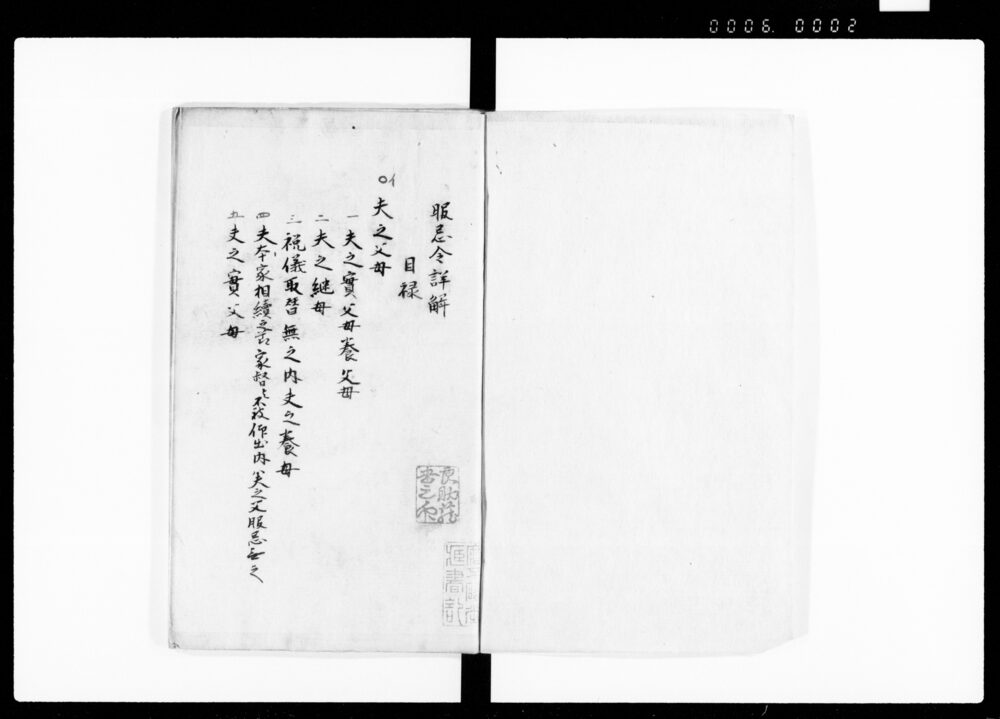 0006. 0002
服忌令詳解
目禄
○イ
夫之父母
一 夫之實父母養父母
二 夫之継母
三 祝儀取替無之内夫之養母
四 夫本家相續之方家督不被仰出内父之父服忌無之
五 夫之實父母
良助蔵
書之印
蔵書記